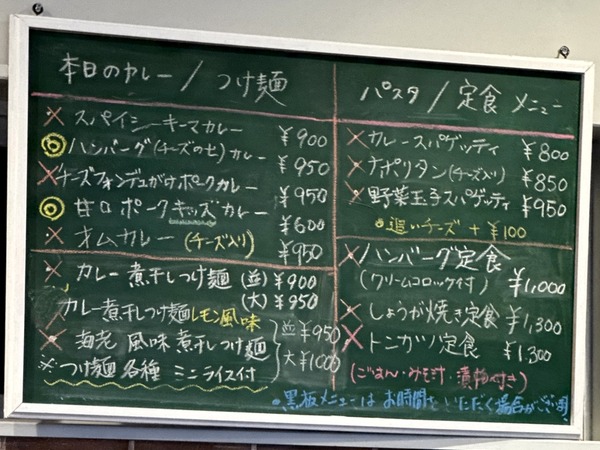 本日のカレー/つけ麺
× スパイシーキーマカレー ¥900
◎ ハンバーグ(チーズのせ)カレー ¥950
× チーズフォンデュがけポークカレー ¥950
◎ 甘口ポークキッズカレー ¥600
× オムカレー(チーズ入り) ¥950
× カレー煮干しつけ麺(並)¥900
(大)¥950
カレー煮干しつけ麺レモン風味
× 海老風味煮干しつけ麺 並¥950
大¥1000
※つけ麺各種ミニライス付
パスタ/定食メニュー
× カレースパゲッティ ¥800
× ナポリタン(チーズ入り) ¥850
× 野菜玉子スパゲッティ ¥950
◎追いチーズ+¥100
× ハンバーグ定食
(クリームコロッケ付) ¥1,000
× しょうが焼き定食 ¥1,300
× トンカツ定食 ¥1,300
(ごはん・みそ汁・漬物付き)
◎黒板メニューはお時間をいただく場合がござい